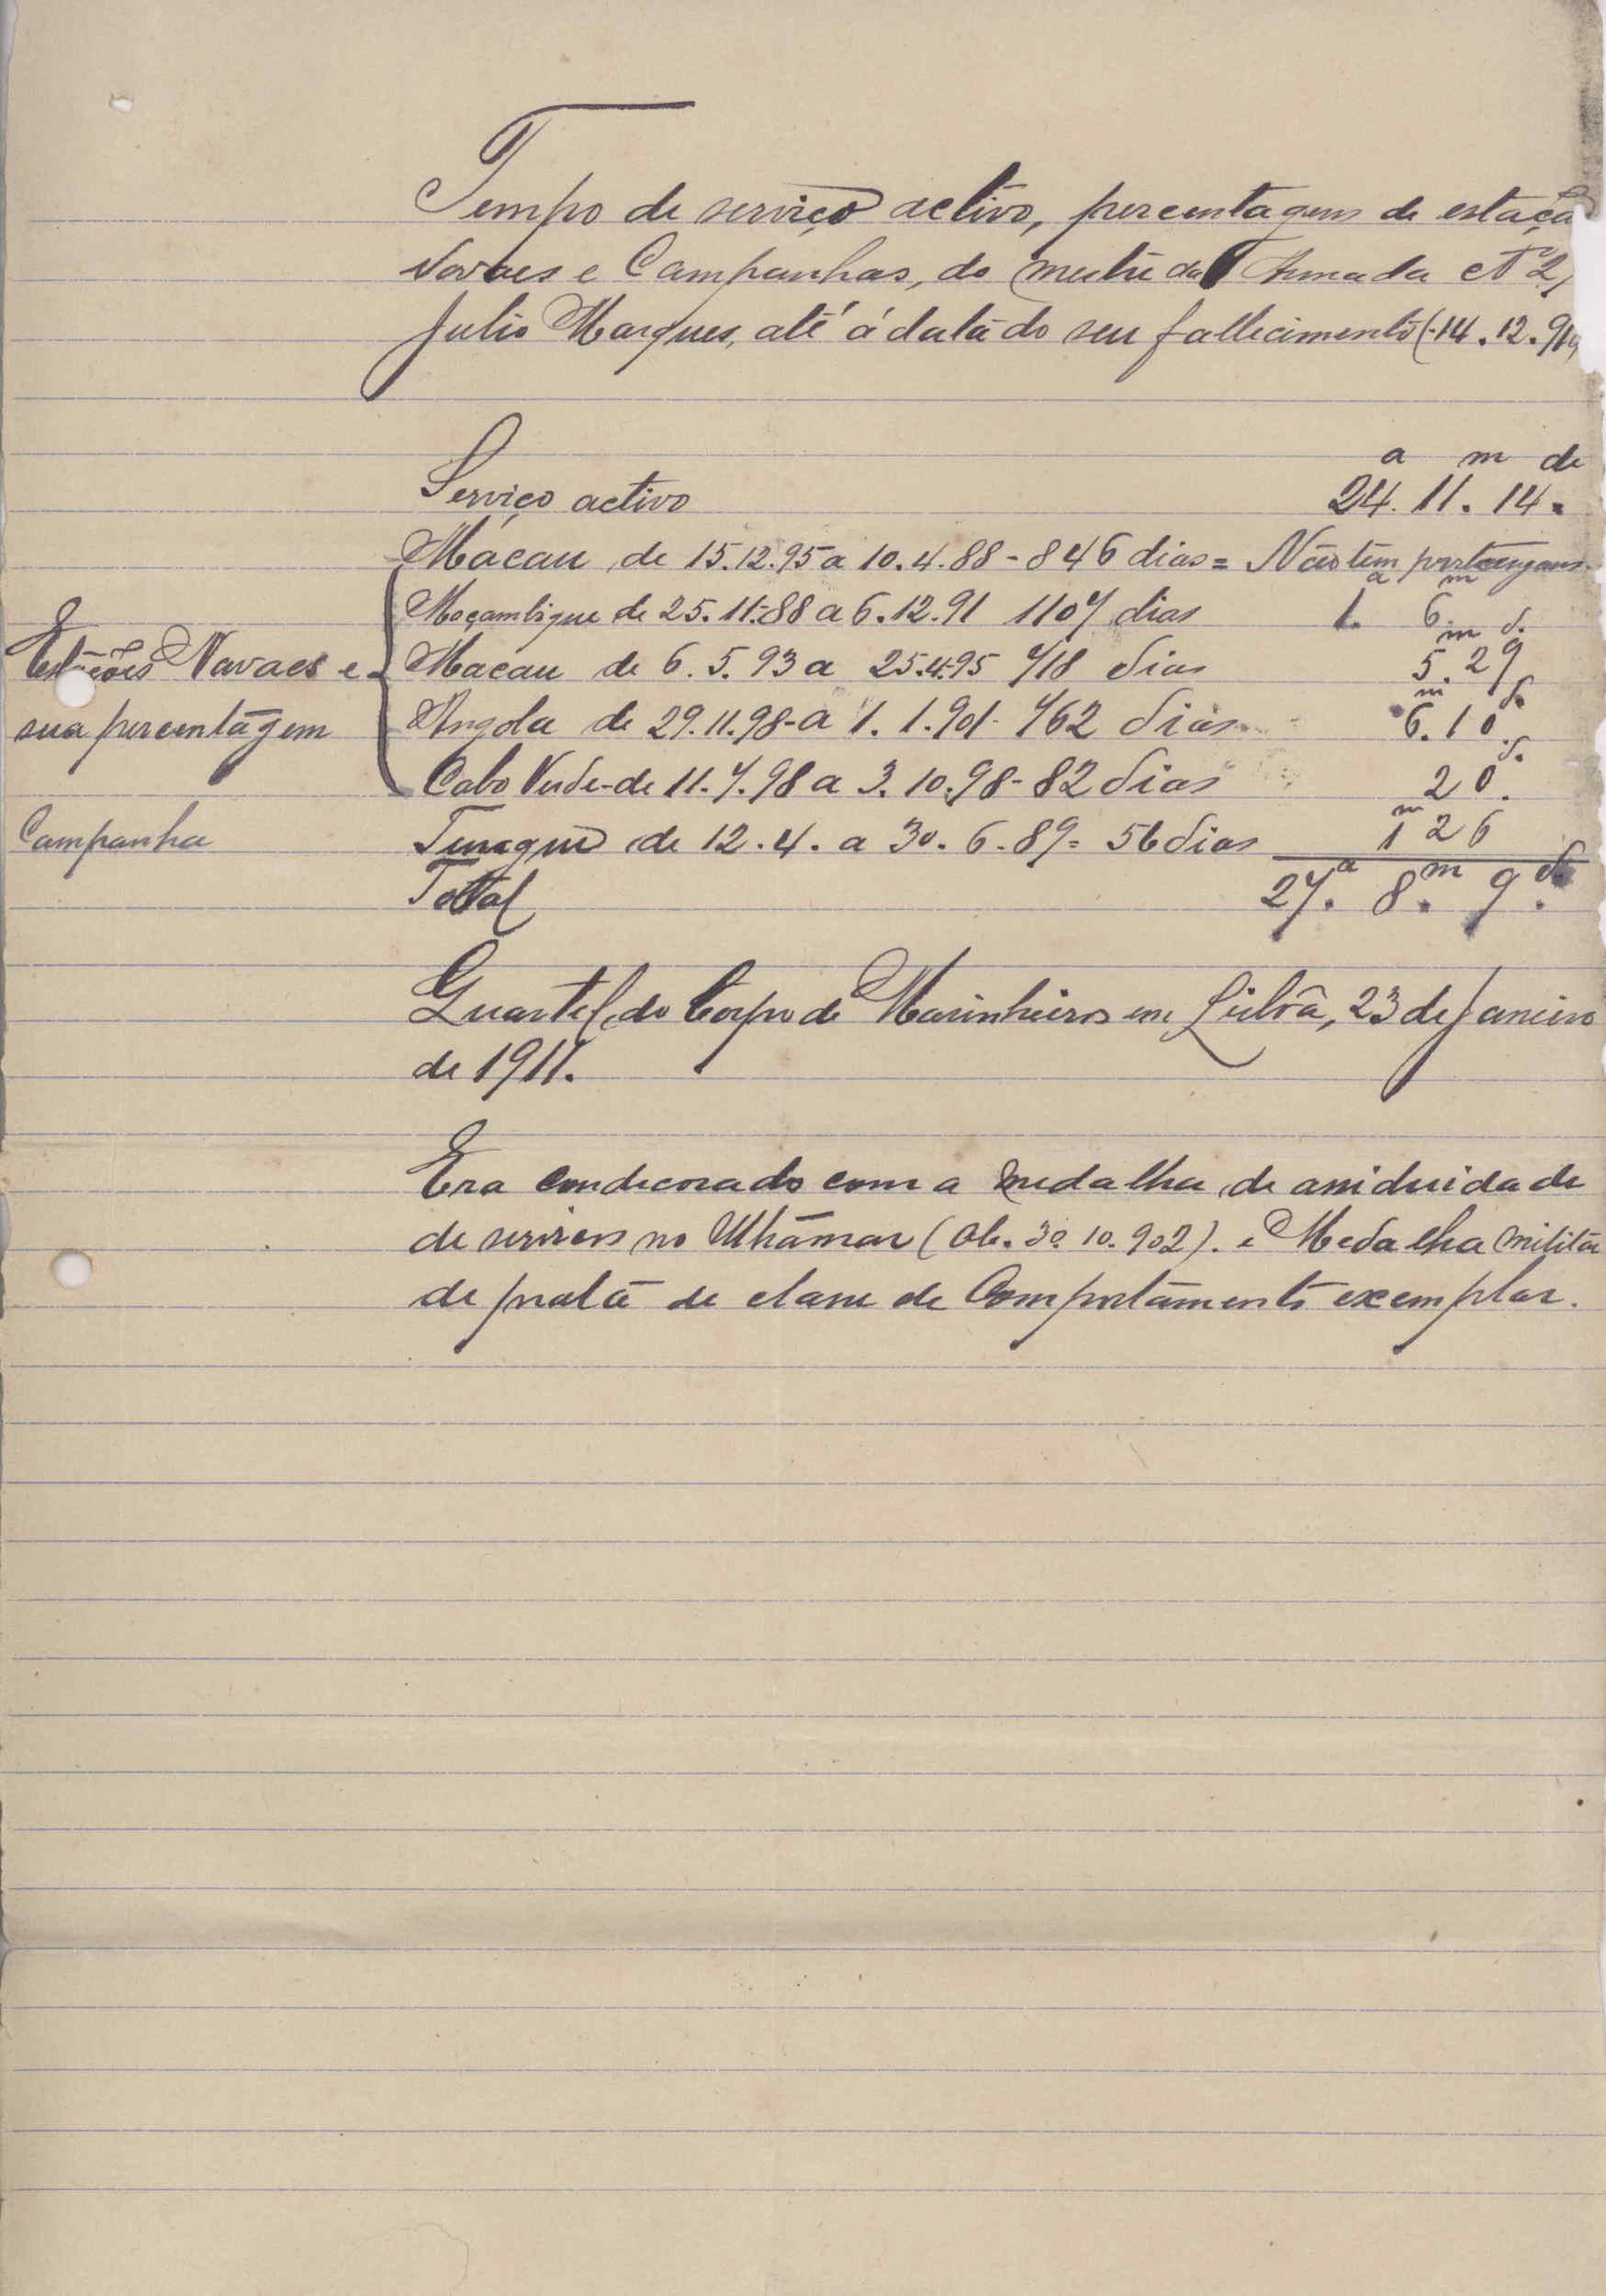 Tempo de serviço activo, percentagens de estaçõ
Navaes e Campanhas, do mestre da Armada Nº 2,
Julio Marques, até á data do seu fallecimento (14.12.910
a m de
Serviço activo 24. 11. 14.
Macau de 15.12.95 a 10.4.88 - 846 dias = Não têm
a m
Moçambique de 25.11.88 a 6.12.91 1107 dias 1. 6.
m d.
Estações Navaes e Macau de 6.5.93 a 25.4.95 718 dias 5.29
m d.
sua percentagem Angola de 29.11.98 - a 1.1.901 - 762 dias 6.10.
d.
Cabo Verde - de 11.7.98 a 3.10.98 - 82 dias 20.
m
Campanha Tungue de 12.4. a 30.6.89 = 56 dias 1 26
Total 27.a 8.m 9.d.
Quartel do Corpo de Marinheiros em Lisbôa, 23 de Janeiro
de 1911.
Era condecorado com a medalha de assiduidade
de serviços no Ultramar (Ob. 30.10.902). e Medalha militar
de prata de classe de Comportamento exemplar.